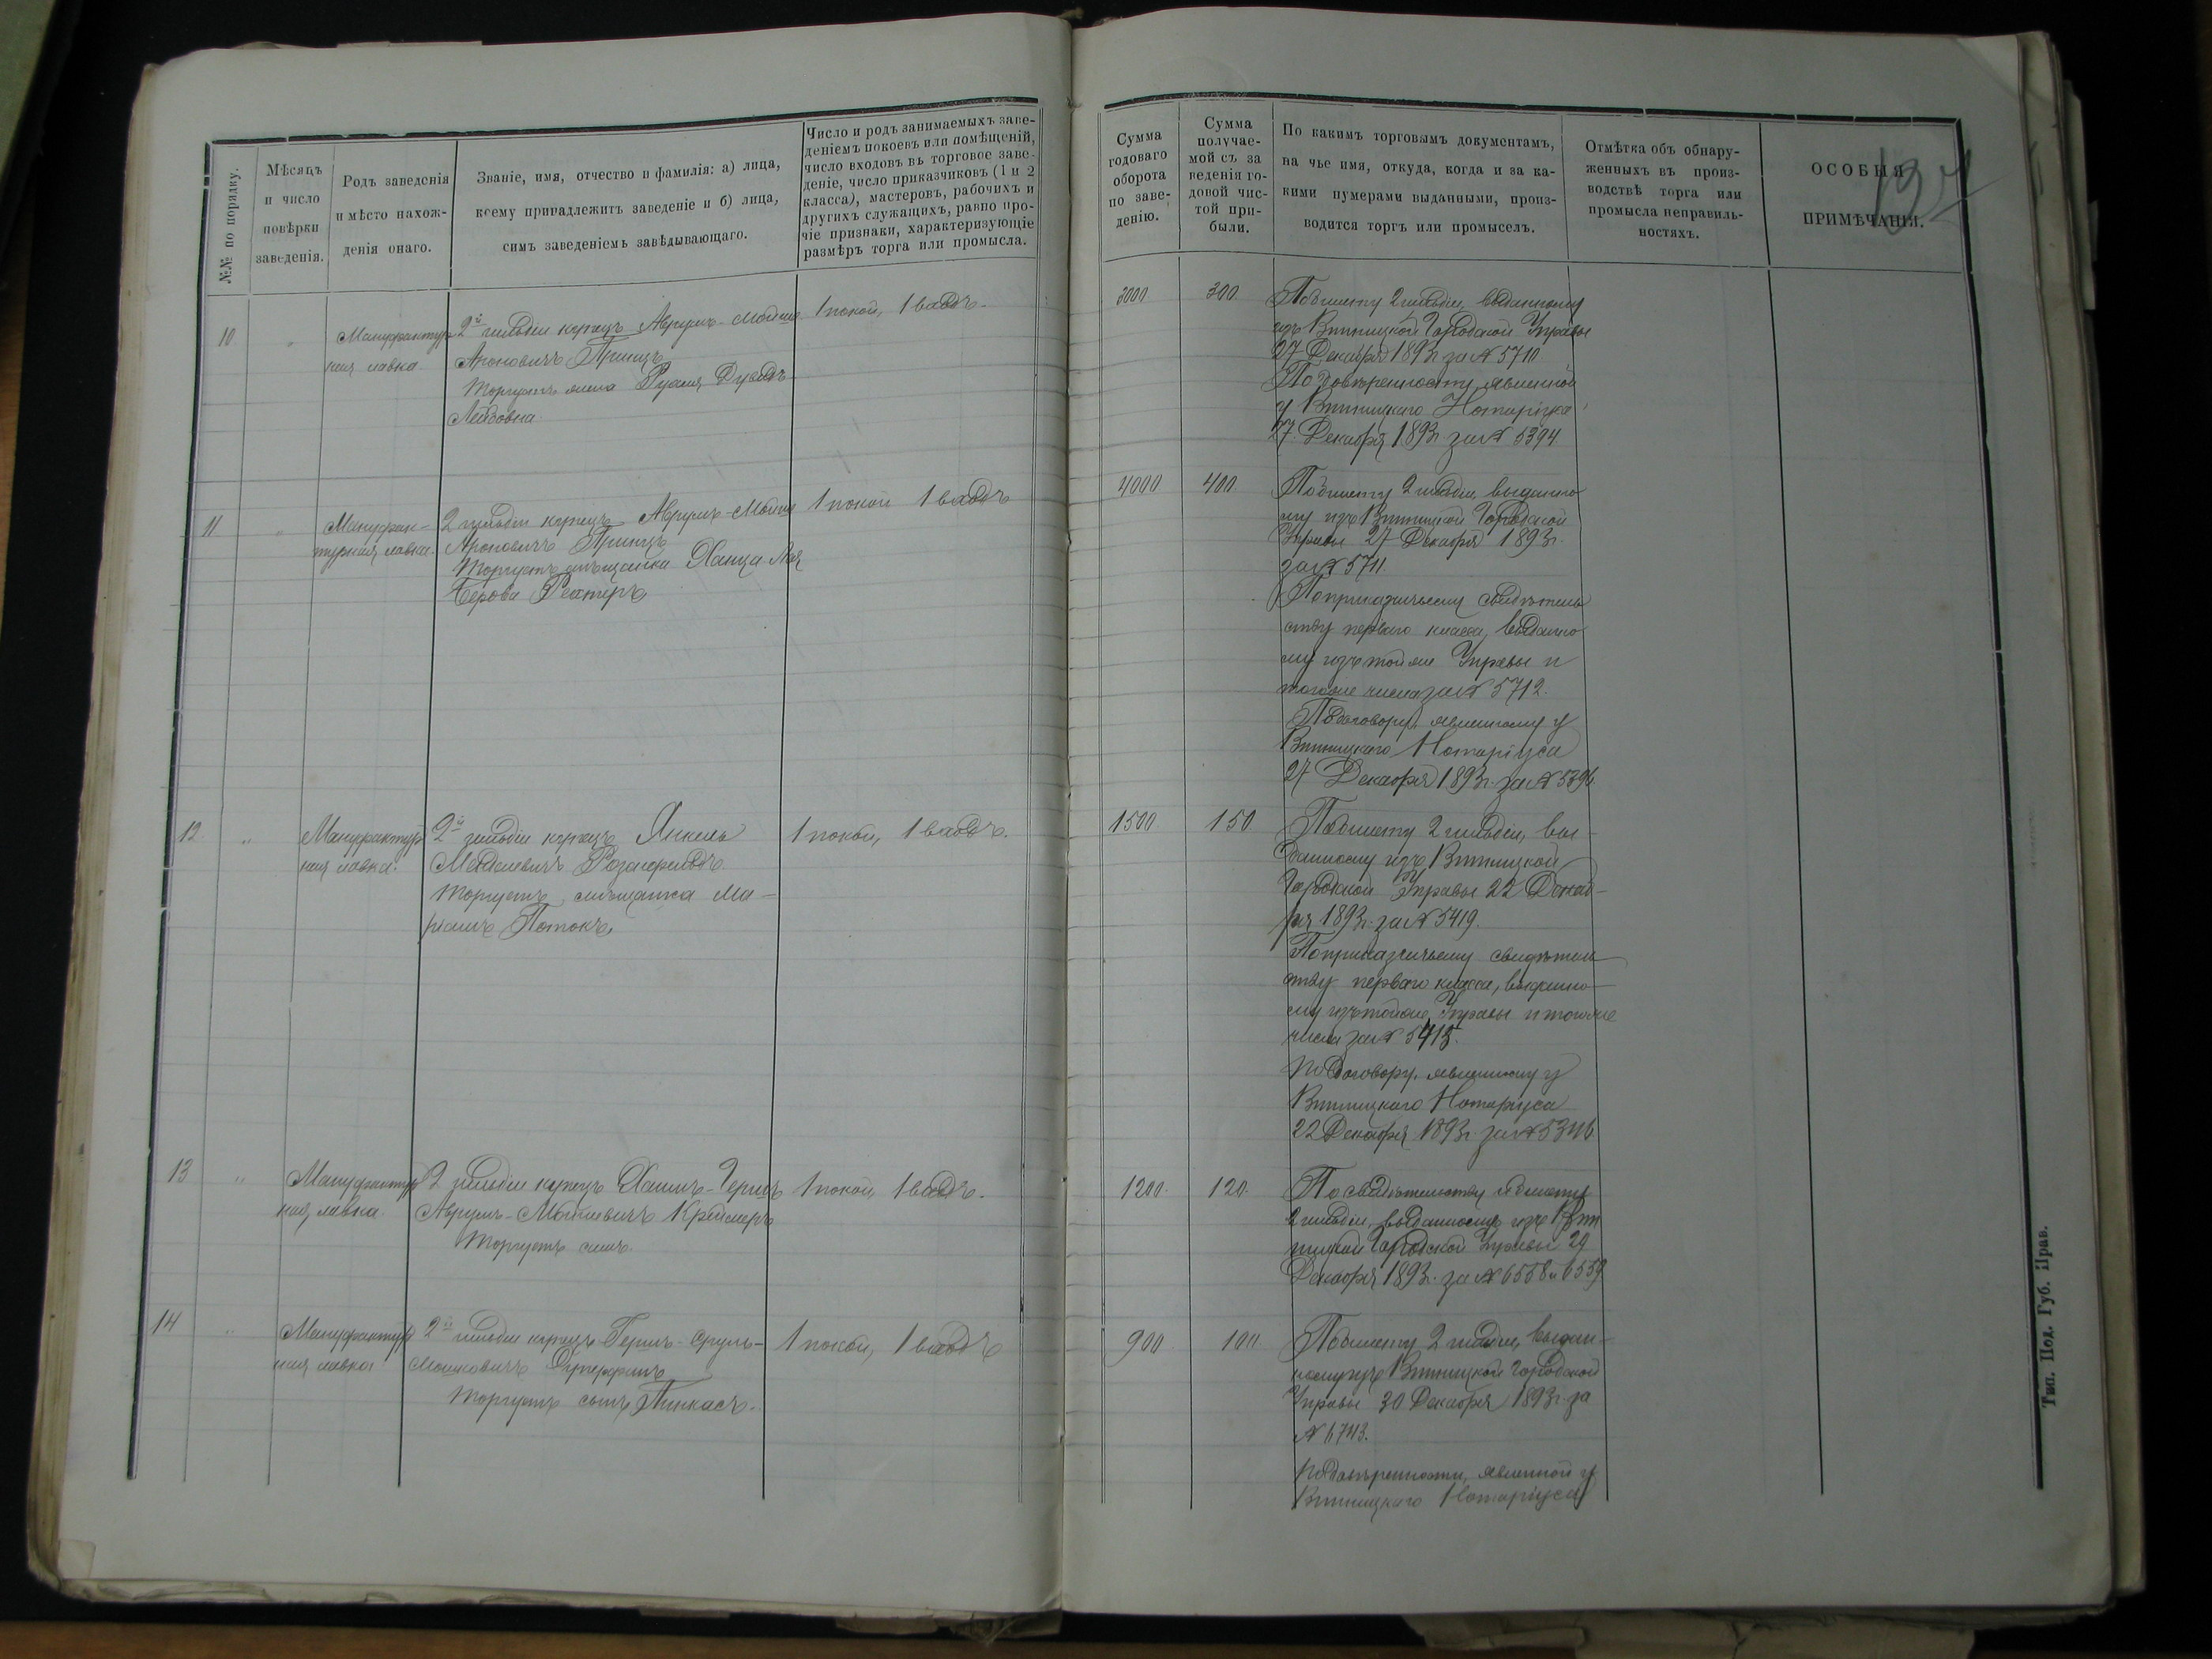 №№ по порядку.
Мѣсяцъ
и число
повѣрки
заведенія.
Родъ заведенія
и мѣсто нахож-
денія онаго.
Званіе, имя, отчество и фамилія: а) лица,
коему принадлежитъ заведеніе и б) лица,
симъ заведеніемъ завѣдывающаго.
Число и родъ занимаемыхъ заве-
деніемъ покоевъ или помѣщеній,
число входовъ въ торговое заве-
деніе, число приказчиковъ (1 и 2
класса), мастеровъ, рабочихъ и
другихъ служащихъ, равно про-
чіе признаки, характеризующіе
размѣръ торга или промысла.
Сумма
годоваго
оборота
по заве-
денію.
Сумма
получае-
мой съ за
веденія го-
довой чис-
той при-
были.
По какимъ торговымъ документамъ,
на чье имя, откуда, когда и за ка-
кими нумерами выданными, произ-
водится торгъ или промыселъ.
Отмѣтка объ обнару-
женныхъ въ произ-
водствѣ торга или
промысла неправиль-
ностяхъ.
ОСОБЫЯ
ПРИМѢЧАНІЯ.
10
"
Мануфактур
ная лавка
2й гильдіи купецъ Аврумъ-Мойше
Ароновичъ Принцъ
Торгуетъ жена Рухля Дувидъ
Лейбовна
1 покой, 1 входъ.
3000
300
По билету 2 гильдіи, выданному
изъ Винницкой Городской Управы
27 Декабря 1893г за № 5710
По довѣренности, явленной
у Винницкаго Нотаріуса
27 Декабря 1893г за № 5394
11
"
Мануфак-
турная лавка.
2 гильдіи купецъ Аврумъ-Мойше
Ароновичъ Принцъ
Торгуетъ мѣщанка Ханца Лая
Берова
1 покой 1 входъ
4000
400
По билету 2 гильдіи, выданно
му изъ Винницкой Городской
Управы 27 Декабря 1893г.
за № 5711
По приказчичьему свидѣтель
ству перваго класса, выданно
му изъ той же Управы и
того же числа за № 5712.
По договору, явленному у
Винницкаго Нотаріуса
27 Декабря 1893г. за № 5396
12
"
Мануфактур
ная лавка.
2й гильдіи купецъ Янкель
Розенфельдъ.
Торгуетъ мѣщанка Ма-
ріамъ Потокъ
1 покой, 1 входъ.
1500
150
По билету 2 гильдіи, вы-
данному изъ Винницкой
Городской Управы 22 Декаб-
ря 1893г. за № 5419.
По приказчичьему свидѣтель
ству перваго класса, выданно-
му изъ той же Управы и того же
числа за № 5413.
По договору, явленному у
Винницкаго Нотаріуса
22 Декабря 1893г. за № 5346
13
"
Мануфактур
ная лавка.
2 гильдіи купецъ Хаимъ-Гершъ
Аврумъ-Мошковичъ Креймеръ
Торгуетъ самъ.
1 покой, 1 входъ.
1200.
120.
По свидѣтельству и билету
2 гильдіи, выданному изъ Вин
ницкой Городской Управы 29
Декабря 1893г. за № 6558 и 6559
14
"
Мануфактур
ная лавка
2й гильдіи купецъ Гершъ-Сруль-
Мошковичъ
Торгуетъ сынъ Пинкасъ.
1 покой, 1 входъ
900
100
По билету 2 гильдіи, выдан-
ному изъ Винницкой Городской
Управы 30 Декабря 1893г. за
№ 6743.
По довѣренности, явленной у
Винницкаго Нотаріуса
Тип. Под. Губ. Прав.